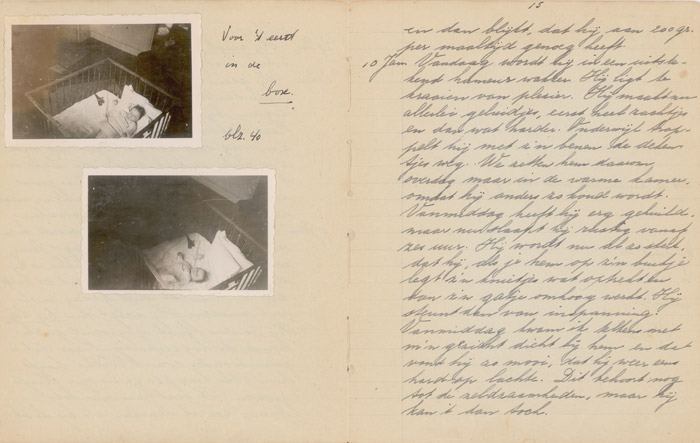 Voor 't eerst
in de
box.
blz. 40
15
en dan blijkt, dat hij aan 200 gr.
per maaltijd genoeg heeft.
10 Jan. Vandaag wordt hij in een uitste-
kend humeur wakker. Hij ligt te
kraaien van plezier. Hij maakt nu
allerlei geluidjes, eerst heel zachtjes
en dan wat harder. Onderwijl trap-
pelt hij met z'n benen de deken-
tjes weg. We zetten hem daarom
overdag maar in de warme kamer,
omdat hij anders zo koud wordt.
Vanmiddag heeft hij erg gehuild
maar nu slaapt hij rustig vanaf
zes uur. Hij wordt nu al zo sterk,
dat hij, als je hem op z'n buikje
legt z'n knietjes wat optrekt en
dan z'n gatje omhoog werkt. Hij
steunt dan van inspanning.
Vanmiddag kwam ik telkens met
m'n gezicht dicht bij hem en dat
vond hij zo mooi, dat hij weer eens
hardop lachte. Dit behoort nog
tot de zeldzaamheden, maar hij
kan 't dan toch.